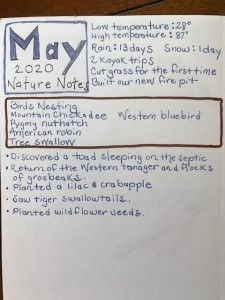 May
2020
Nature Notes
Low temperature: 28°
High temperature: 87°
Rain: 13 days Snow: 1 day
2 Kayak trips
Cut grass for the first time
Built our new fire pit
Birds Nesting
Mountain Chickadee Western bluebird
Pygmy nuthatch
American robin
Tree swallow
• Discovered a toad sleeping on the septic
• Return of the Western tanager and flocks
of grosbeaks.
• Planted a lilac & crabapple
• Saw tiger swallowtails.
• Planted wildflower seeds.